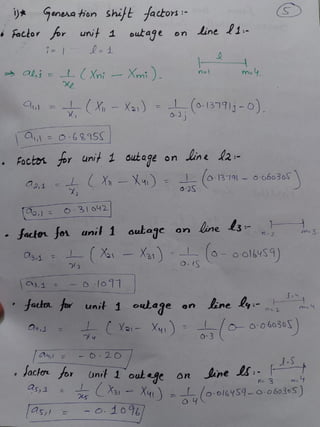 i)* Generation shift factors:-
5
• Factor for unit 1 outage on line l1:-
i=1 l=1
l
n=1 m=4
⇒ al,i = 1/xl (Xni - Xmi).
a1,1 = 1/x1 (X11 - X21) = 1/0.2j (0.13791j - 0).
a1,1 = 0.68955
• Factor for unit 1 outage on line l2:-
a2,1 = 1/x2 (X11 - X41) = 1/0.25 (0.13791 - 0.060305)
a2,1 = 0.31042
• factor for unit 1 outage on line l3:-
n=2 m=3
a3,1 = 1/x2 (X21 - X31) = 1/0.15 (0 - 0.016459)
a3,1 = - 0.1097
• factor for unit 1 outage on line l4:-
n=2 m=4
a4,1 = 1/x4 (X21 - X41) = 1/0.3 (0 - 0.060305)
a4,1 = - 0.20
• factor for unit 1 outage on line l5:-
l=5
n=3 m=4
a5,1 = 1/x5 (X31 - X41) = 1/0.4 (0.016459 - 0.060305)
a5,1 = - 0.1096